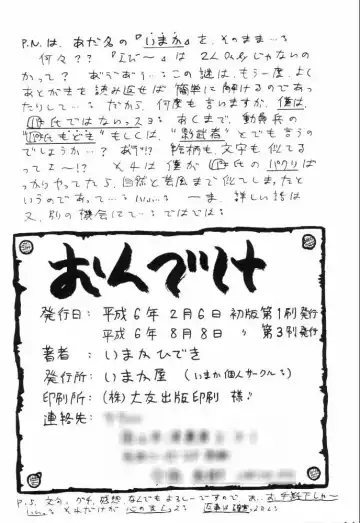 P.N.は、あだ名の『いまか』を、そのまま…：
何々？？『エび〜』は 2人Onlyじゃないの
かって？ おうおう…：この謎は、もう一度、よく
あとがきを読み返せば 簡単に解けるのであっ
たりして…： だから、何度も言いますが、僕は、
氏ではないっスョ： あくまで、動員兵の
もどき"もしくは、"影武者"とでも言うの
でしょうか…？ あぅ!? 絵柄も、文字も似てる
ってょ〜!? ×4は 僕が 氏の パクリば
っかりやってたら、自然と芸風まで似てしまったと
いうのであって…： …： ーま、詳しい話は
又、別の機会にて…：ではでは：
おくづけ
発行日：平成6年2月6日 初版第1刷発行
平成6年8月8日 〃 第3刷発行
著者：いまかひでき
発行所：いまか屋（いまか個人サークル：）
印刷所：（株）大友出版印刷 様♪
連絡先：
P.S. 文句、グチ、感想 なんでもよろしーですので、お…お手紙下しゃ〜
い…： それだけが 心の支え：